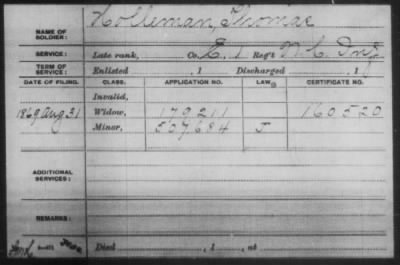 NAME OF SOLDIER: Holleman, Thomas
SERVICE: Late rank, Co. E. 1 Reg't N. C. Inf
TERM OF SERVICE: Enlisted , 1 Discharged , 1
DATE OF FILING. CLASS. APPLICATION NO. LAW. CERTIFICATE NO.
Invalid,
1869 Aug 31 Widow, 179211 160520
Minor, 507684 J
ADDITIONAL SERVICES:
REMARKS:
Died , 1 , at